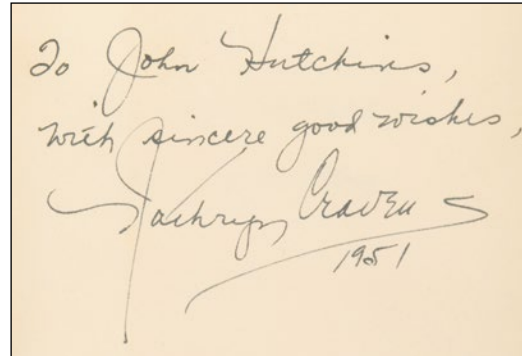 To John Hutchins,
with sincere good wishes,
Kathryn Craven
1951